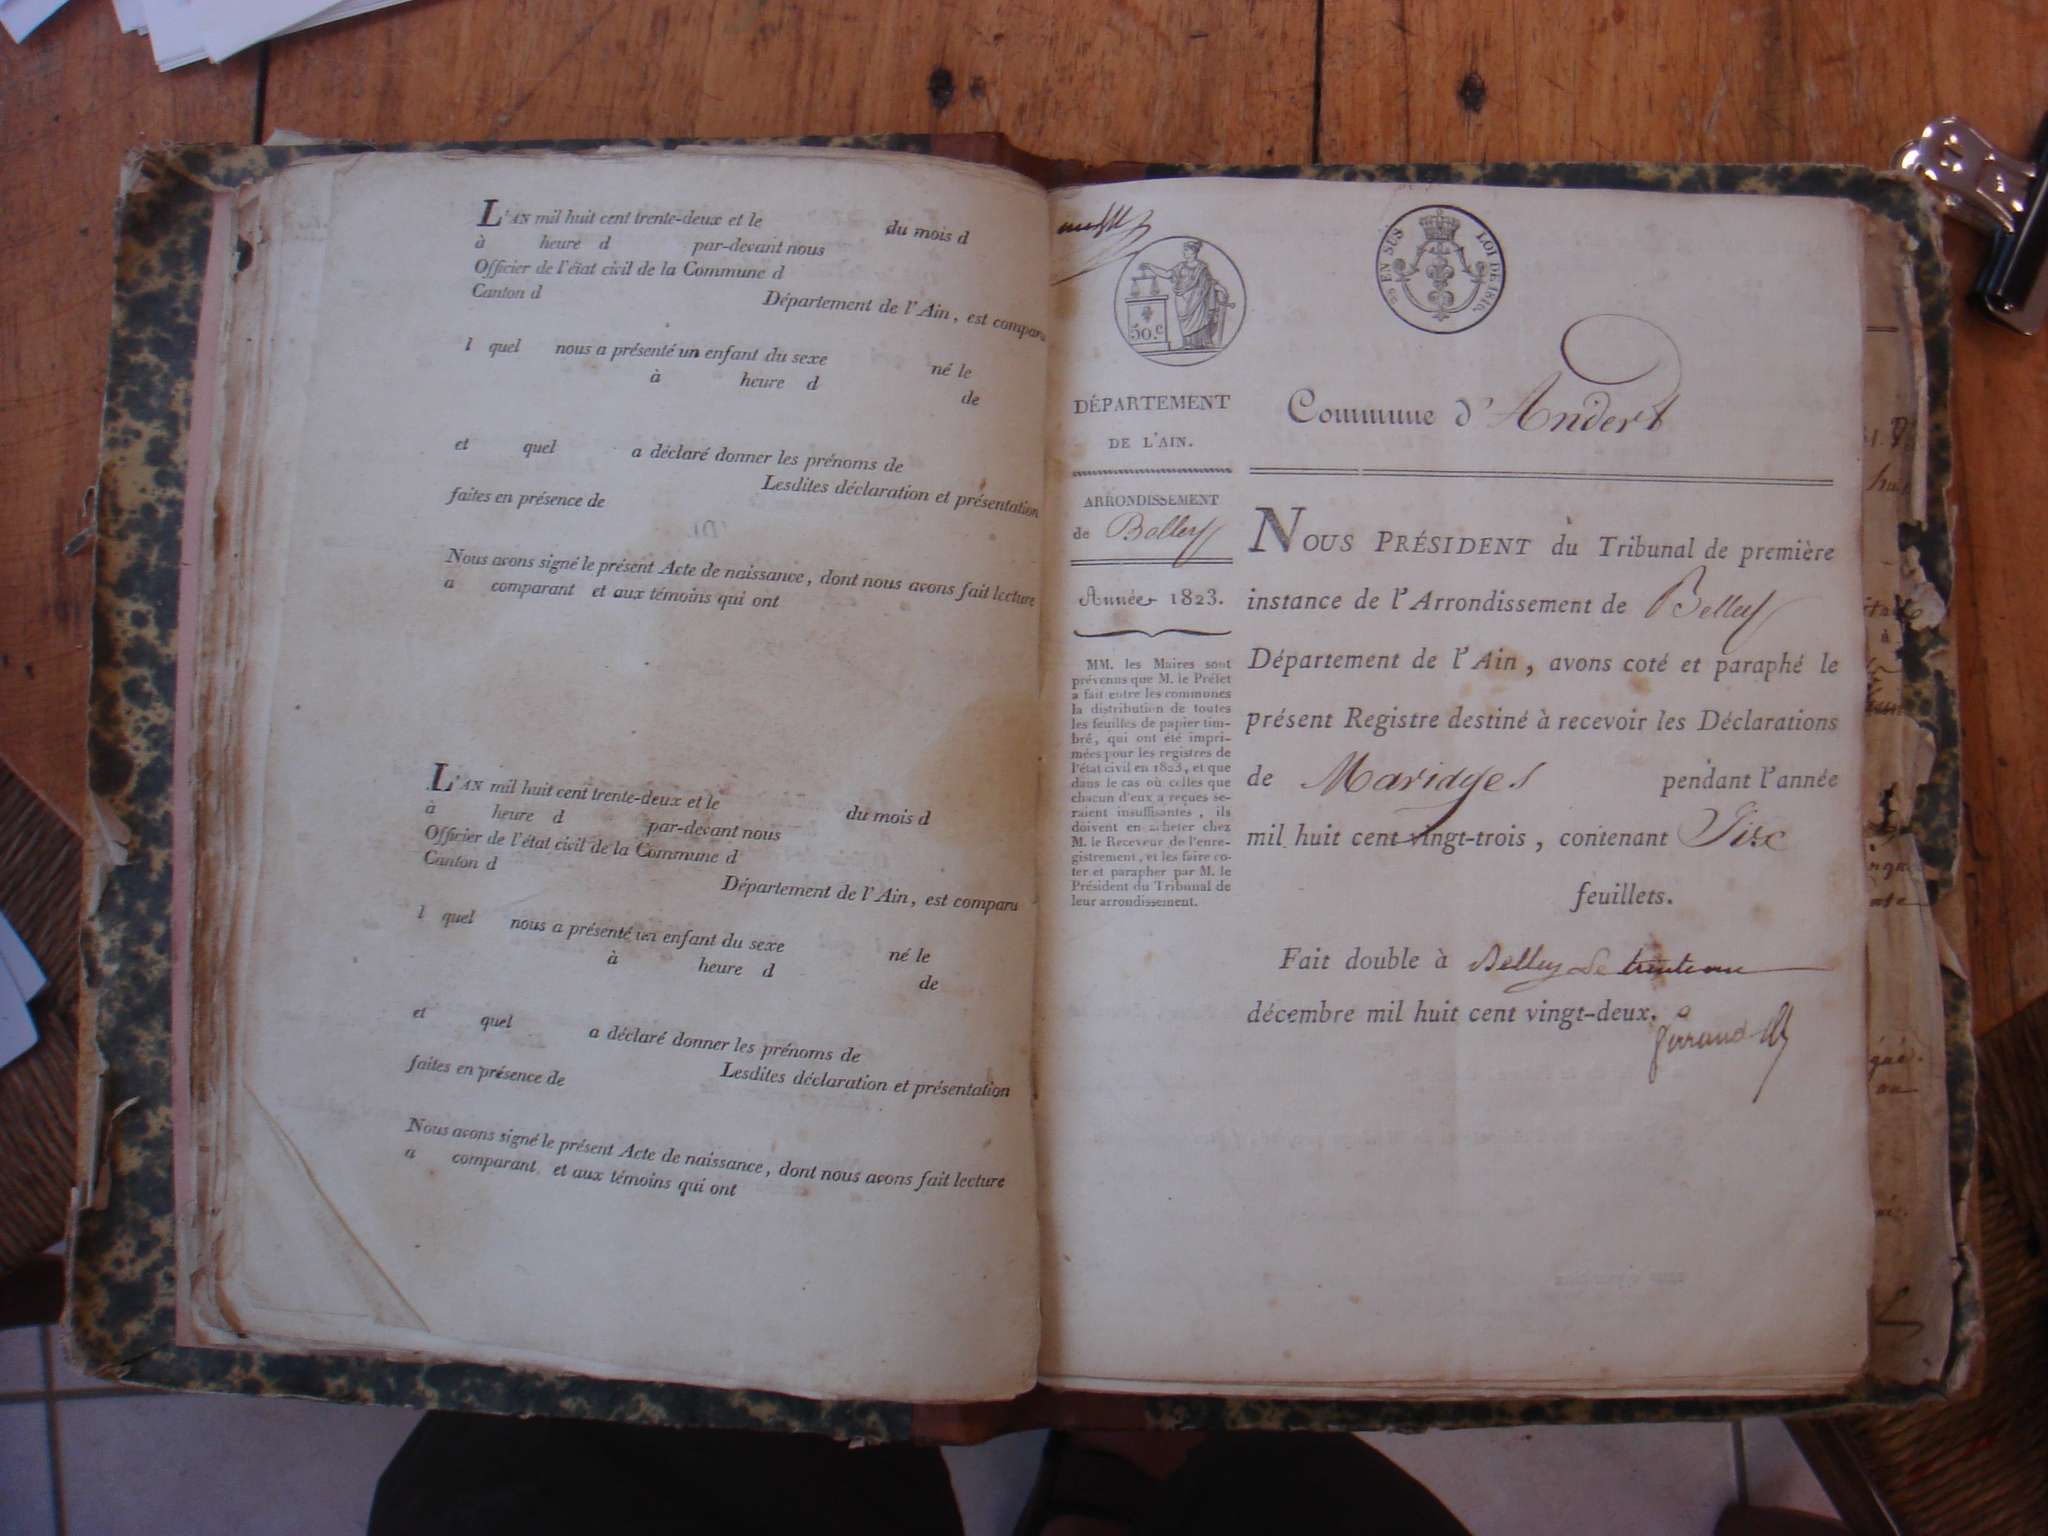 L'AN mil huit cent trente-deux et le du mois d
à heure d par-devant nous
Officier de l'état civil de la Commune d
Canton d Département de l'Ain, est comparu
l quel nous a présenté un enfant du sexe né le
à heure d de
et quel a déclaré donner les prénoms de
Lesdites déclaration et présentation
faites en présence de
Nous avons signé le présent Acte de naissance, dont nous avons fait lecture
a comparant et aux témoins qui ont
L'AN mil huit cent trente-deux et le du mois d
à heure d par-devant nous
Officier de l'état civil de la Commune d
Canton d Département de l'Ain, est comparu
l quel nous a présenté un enfant du sexe né le
à heure d de
et quel a déclaré donner les prénoms de
Lesdites déclaration et présentation
faites en présence de
Nous avons signé le présent Acte de naissance, dont nous avons fait lecture
a comparant et aux témoins qui ont
50.c
EN SUS LOI DE 1816.
DÉPARTEMENT
DE L'AIN.
ARRONDISSEMENT
de Belley
Année 1823.
MM. les Maires sont
prévenus que M. le Préfet
a fait entre les communes
la distribution de toutes
les feuilles de papier tim-
bré, qui ont été impri-
mées pour les registres de
l'état civil en 1823, et que
dans le cas où celles que
chacun d'eux a reçues se-
raient insuffisantes, ils
doivent en acheter chez
M. le Receveur de l'enre-
gistrement, et les faire co-
ter et parapher par M. le
Président du Tribunal de
leur arrondissement.
Commune d'Andert
NOUS PRÉSIDENT du Tribunal de première
instance de l'Arrondissement de Belley
Département de l'Ain, avons coté et paraphé le
présent Registre destiné à recevoir les Déclarations
de Mariages pendant l'année
mil huit cent vingt-trois, contenant Six
feuillets.
Fait double à Belley le trente un
décembre mil huit cent vingt-deux.